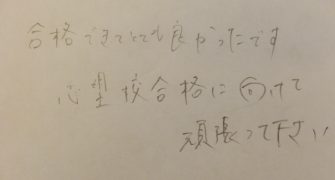 合格できてとても良かったです
心望校合格に向けて
頑張って下さい